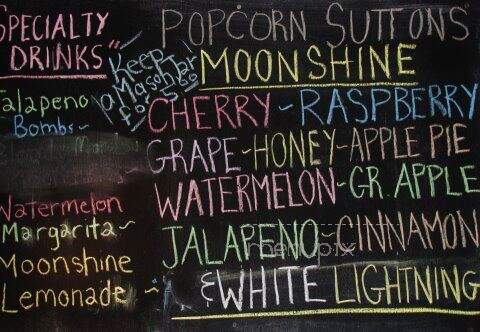 SPECIALTY
DRINKS"
Jalapeno
Bombs~
Watermelon
Margarita~
Moonshine
Lemonade ~
Keep
Mason Jar
for $5.00
POPCORN SUTTONS
MOONSHINE
CHERRY~RASPBERRY
GRAPE~HONEY~APPLE PIE
WATERMELON~GR. APPLE
JALAPENO~CINNAMON
& WHITE LIGHTNING
menupix